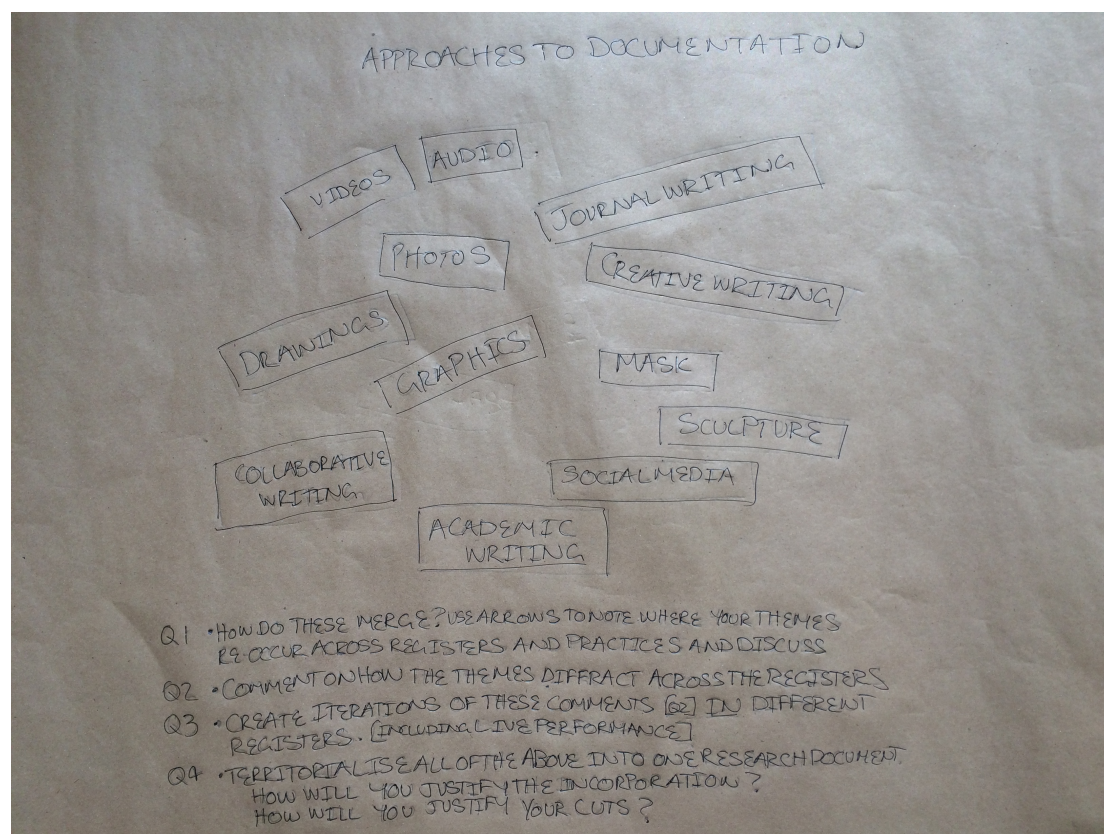 APPROACHES TO DOCUMENTATION
VIDEOS
AUDIO
JOURNAL WRITING
PHOTOS
CREATIVE WRITING
DRAWINGS
GRAPHICS
MASK
SCULPTURE
COLLABORATIVE
WRITING
SOCIAL MEDIA
ACADEMIC
WRITING
Q1 • HOW DO THESE MERGE? USE ARROWS TO NOTE WHERE YOUR THEMES
RE-OCCUR ACROSS REGISTERS AND PRACTICES AND DISCUSS
Q2 • COMMENT ON HOW THE THEMES DIFFRACT ACROSS THE REGISTERS
Q3 • CREATE ITERATIONS OF THESE COMMENTS [Q2] IN DIFFERENT
REGISTERS. [INCLUDING LIVE PERFORMANCE]
Q4 • TERRITORIALISE ALL OF THE ABOVE INTO ONE RESEARCH DOCUMENT.
HOW WILL YOU JUSTIFY THE INCORPORATION?
HOW WILL YOU JUSTIFY YOUR CUTS?